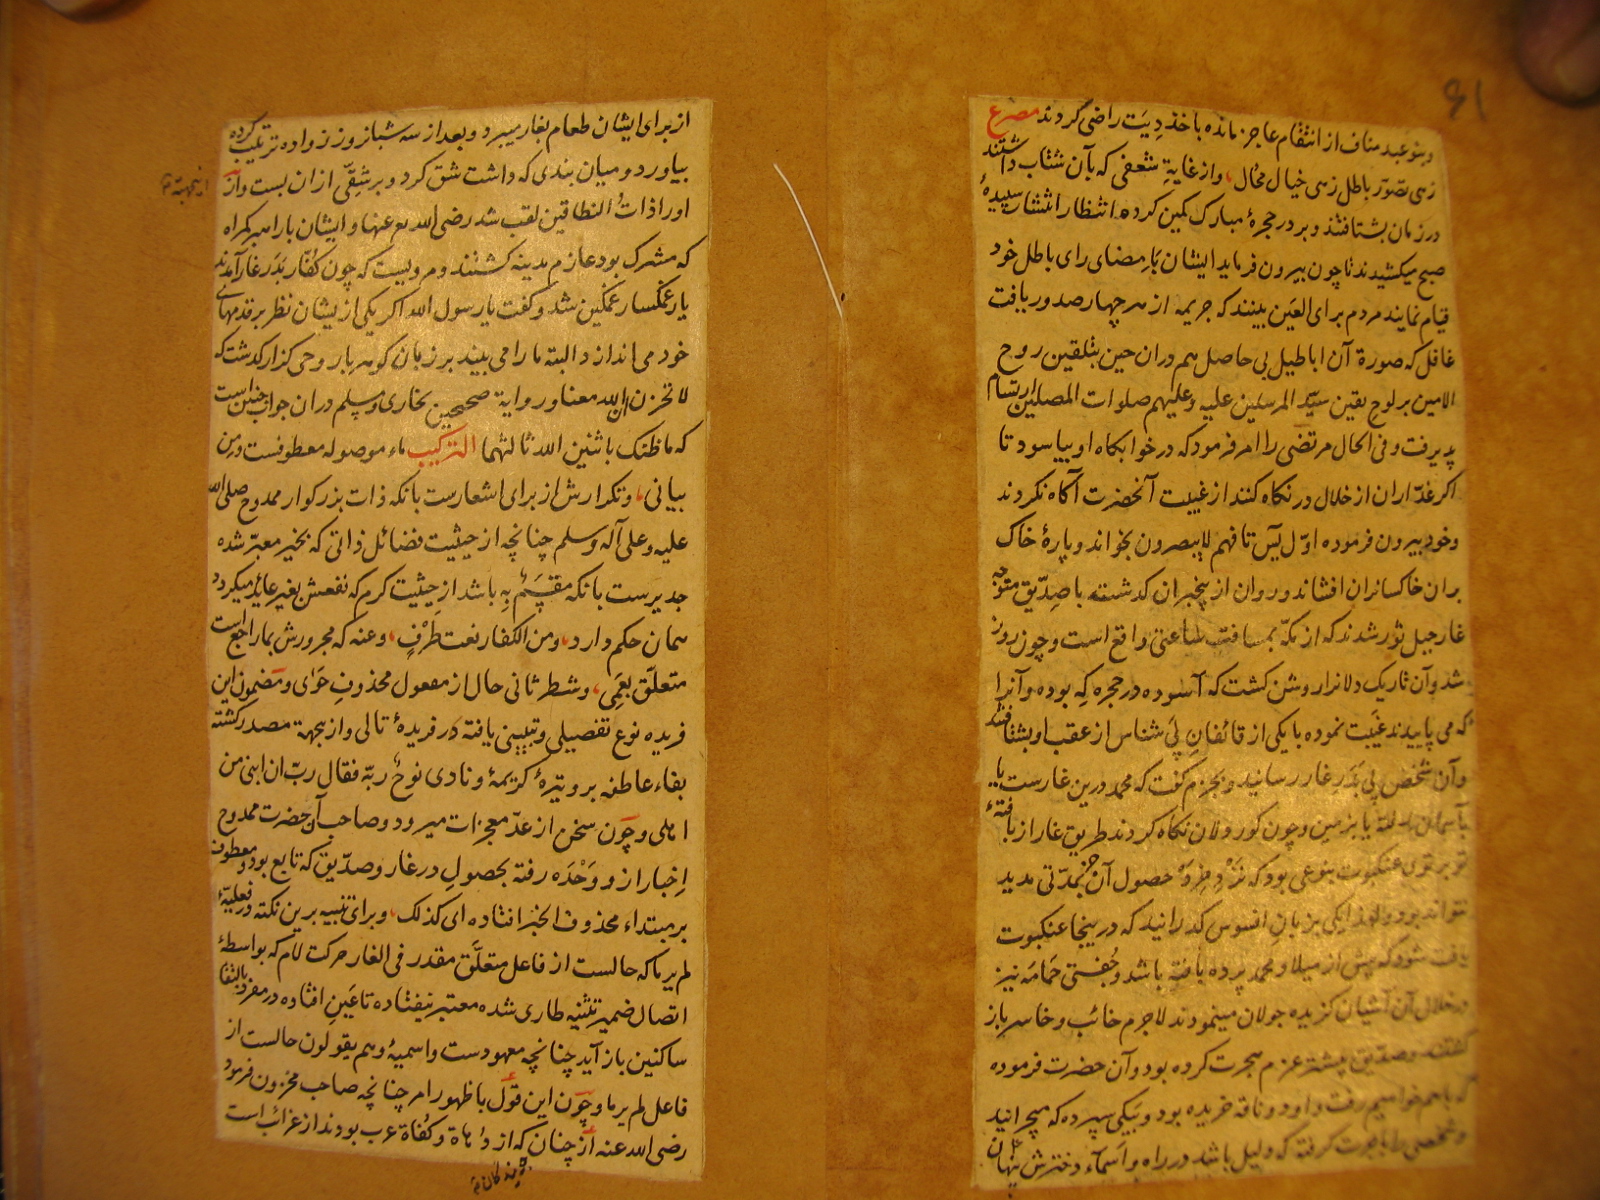 ٤١
وبنو عبد مناف از انتقام عاجز مانده باخذ دیَت راضی گردند مصرع
زهی تصوّر باطل زهی خیال محُال، واز غایة شعفی که بآن شتاب داشتند
در زمان بشتافتند و بر در حجرهٔ مبارک کمین کرده انتظار انتشار سپیدهٔ
صبح میکشیدند تا چون بیرون فرماید ایشان باِمضای رای باطل خود
قیام نمایند مردم برای العَین بینند که جریمه از هر چهار صدور یافت
غافل که صورة آن اباطیل بی حاصل هم دران حین بتلقین روح
الامین بر لوح یقین سیّد المرسلین علیه وعلیهم صلوات المصلین ارتسام
پذیرفت و فی الحال مرتضی را امر فرمود که در خوابکاه او بیاسود تا
اکر غدّاران از خلال در نکاه کنند از غیبت آنحضرت آکاه نکردند
و خود بیرون فرموده اوّل یٓس تا فهم لایبصرون بخواند و پارهٔ خاک
بران خاکساران افشاند و روان از بیخبران کدشت با صدّیق متوجه
غار جبل ثور شدند که از مکّه بمسافت ساعتی واقع است و چون روز
شد و آن تاریک دلانرا روشن کشت که آسوده در حجره که بوده و آنرا
که می پاییدند غیَبت نموده با یکی از قائفانِ پَی شناس از عقب او بشتافتند
و آن شخص پی بَدَر غار رسانید و بجزم کفت که محمد درین غارست یا
بآسمان یا بزمین و چون کورولان نکاه کردند طریق غار از بافتهٔ
تو بر توی عنکبوت بنوعی بود که نَزد خِرَد حصول آن جز بمدّتی مدید
نتواند بود و لهذا یکی بزبانِ افسوس کذرانید که درینجا عنکبوت
یافت شود که پیش از میلاد محمد پرده بافته باشد و جُفتی حَمامَه نیز
در خلال آن آشیان کزیده جولان مینمودند لاجرم خائب و خاسر باز
کشتند و صدّیق پیشتر عزم هجرت کرده بود و آن حضرت فرموده
که باهم خواهیم رفت و او دو ناقه خریده بود و بیکی سپرده که میچرانید
و شخصی را باجرت کرفته که دلیل باشد در راه و اَسماَء دخترش پنهان
از برای ایشان طعام بغار میبرد و بعد از سه شبانروز زواده ترتیب کرده
بیاورد و میان بندی که داشت شق کرد و بر شِقّی ازان بست واز
ازینجهته
او را ذاتُ النطاقین لقب شد رضی الله تع عنها و ایشان با راهبر کمراه
که مشرک بود عازم مدینه کشتند و مرویست که چون کفّار بَدَر غار آمدند
یار غمکسار غمکین شد و کفت یا رسول الله اکر یکی از یشان نظر بر قدمهای
خود می اندازد البته ما را می بیند بر زبان کوهربار وحی کزار کدشت که
لا تحزن ان الله معنا و روایة صحیحین بخاری و مسلم دران جواب چنین است
که ما ظنک باثنین الله ثالثهما الترکیب ماء موصوله معطوفست و مِن
بیانی، و تکرارش از برای اشعارست بانکه ذات بزرکوار ممدوح صلی الله
علیه وعلی آله وسلم چنانچه از حیثیت فضائل ذاتی که بخیر معبّر شده
جدیرست بانکه مقسَم بِه باشد از حیثیت کرم که نفعش بغیر عاید میکردد
همان حکم دارد، و من الکفار نعت طرْفٍ، و عنه که مجرورش بما راجع است
متعلّق بعَمِی، و شطر ثانی حال از مفعول محذوفِ حَوَای و مضمون این
فریده نوع تفصیلی و تبیینی یافته در فریدهٔ تالی وازینجهة مصدر کشته
بفاء عاطفه بر وتیرهٔ کریمهٔ و نادی نوحٌ ربّه فقال ربّ ان ابنی من
اهلی و چون سخن از عدّ معجزات میرود و صاحب آن حضرت ممدوح
اِخبار از و وَحْدَه رفته بحصولِ در غار و صدّیق که تابع بود معطوف
بر مبتداء محذوف الخبر افتاده ای کذلک، و برای تنبیه برین نکته در فعلیّهٔ
لم یرما که حالست از فاعل متعلَّق مقدر فی الغار حرکت لام که بواسطهٔ
اتصال ضمیر تثنیه طاری شده معتبر نیفتاده تا عَینِ افتاده در مفرد بالتقا
ساکنین باز آید چنانچه معهودست و اسمیهٔ و هم یقولون حالست از
فاعل لم یرما و چون این قول با ظهور امر چنانچه صاحب مخزون فرمود
رضی الله عنه از چنان که از دُهاة و کُفاة عرب بودند از غرائب است